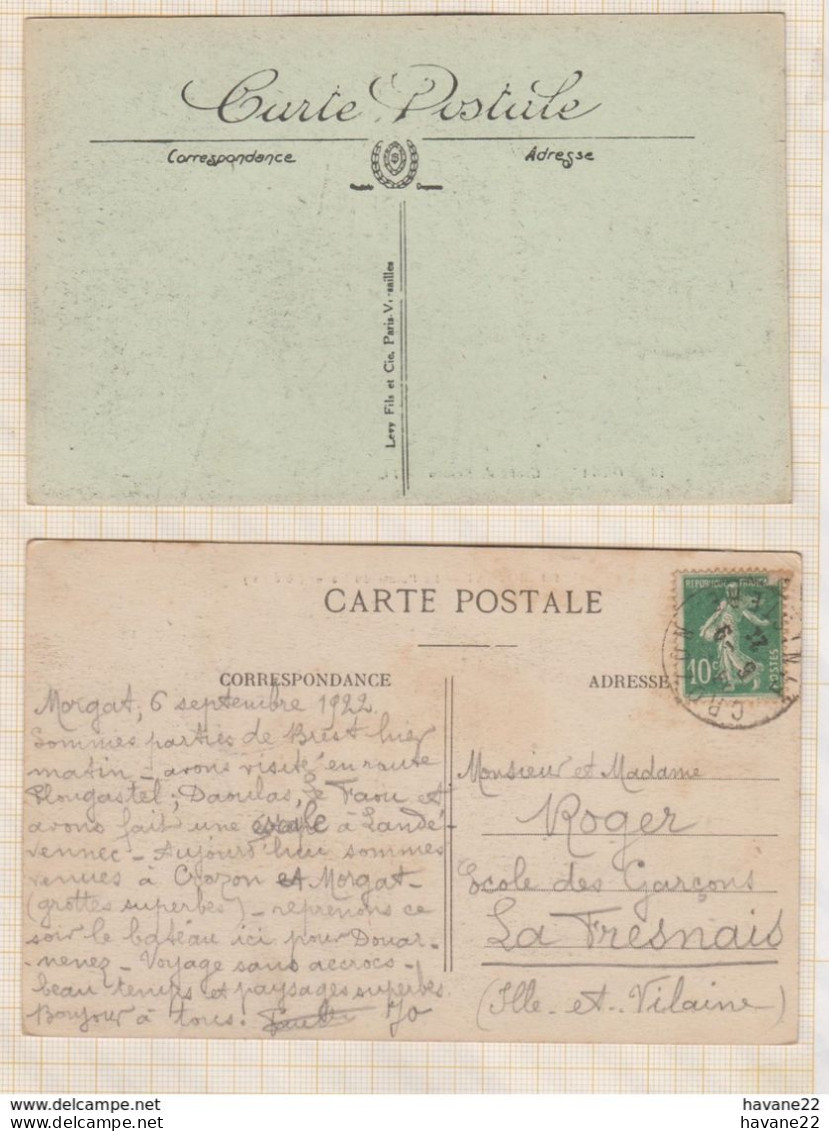 Carte Postale
Correspondance
Adresse
Levy Fils et Cie, Paris-Versailles
CARTE POSTALE
REPUBLIQUE FRANÇAISE
10c
POSTES
CROZON
CORRESPONDANCE
ADRESSE
Morgat, 6 septembre 1922
Sommes parties de Brest hier
matin - avons visité en route
Plougastel, Daoulas, le Faou et
avons fait une escale à Landé-
vennec - Aujourd'hui sommes
venues à Crozon et Morgat -
(grottes superbes) - reprenons ce
soir le bateau ici pour Douar-
nenez - Voyage sans accrocs -
beau temps et paysages superbes
Bonjour à tous. Jo
Monsieur et Madame
Roger
Ecole des Garçons
La Fresnais
(Ille-et-Vilaine)
www.delcampe.net
havane22
www.delcampe.net
havane22